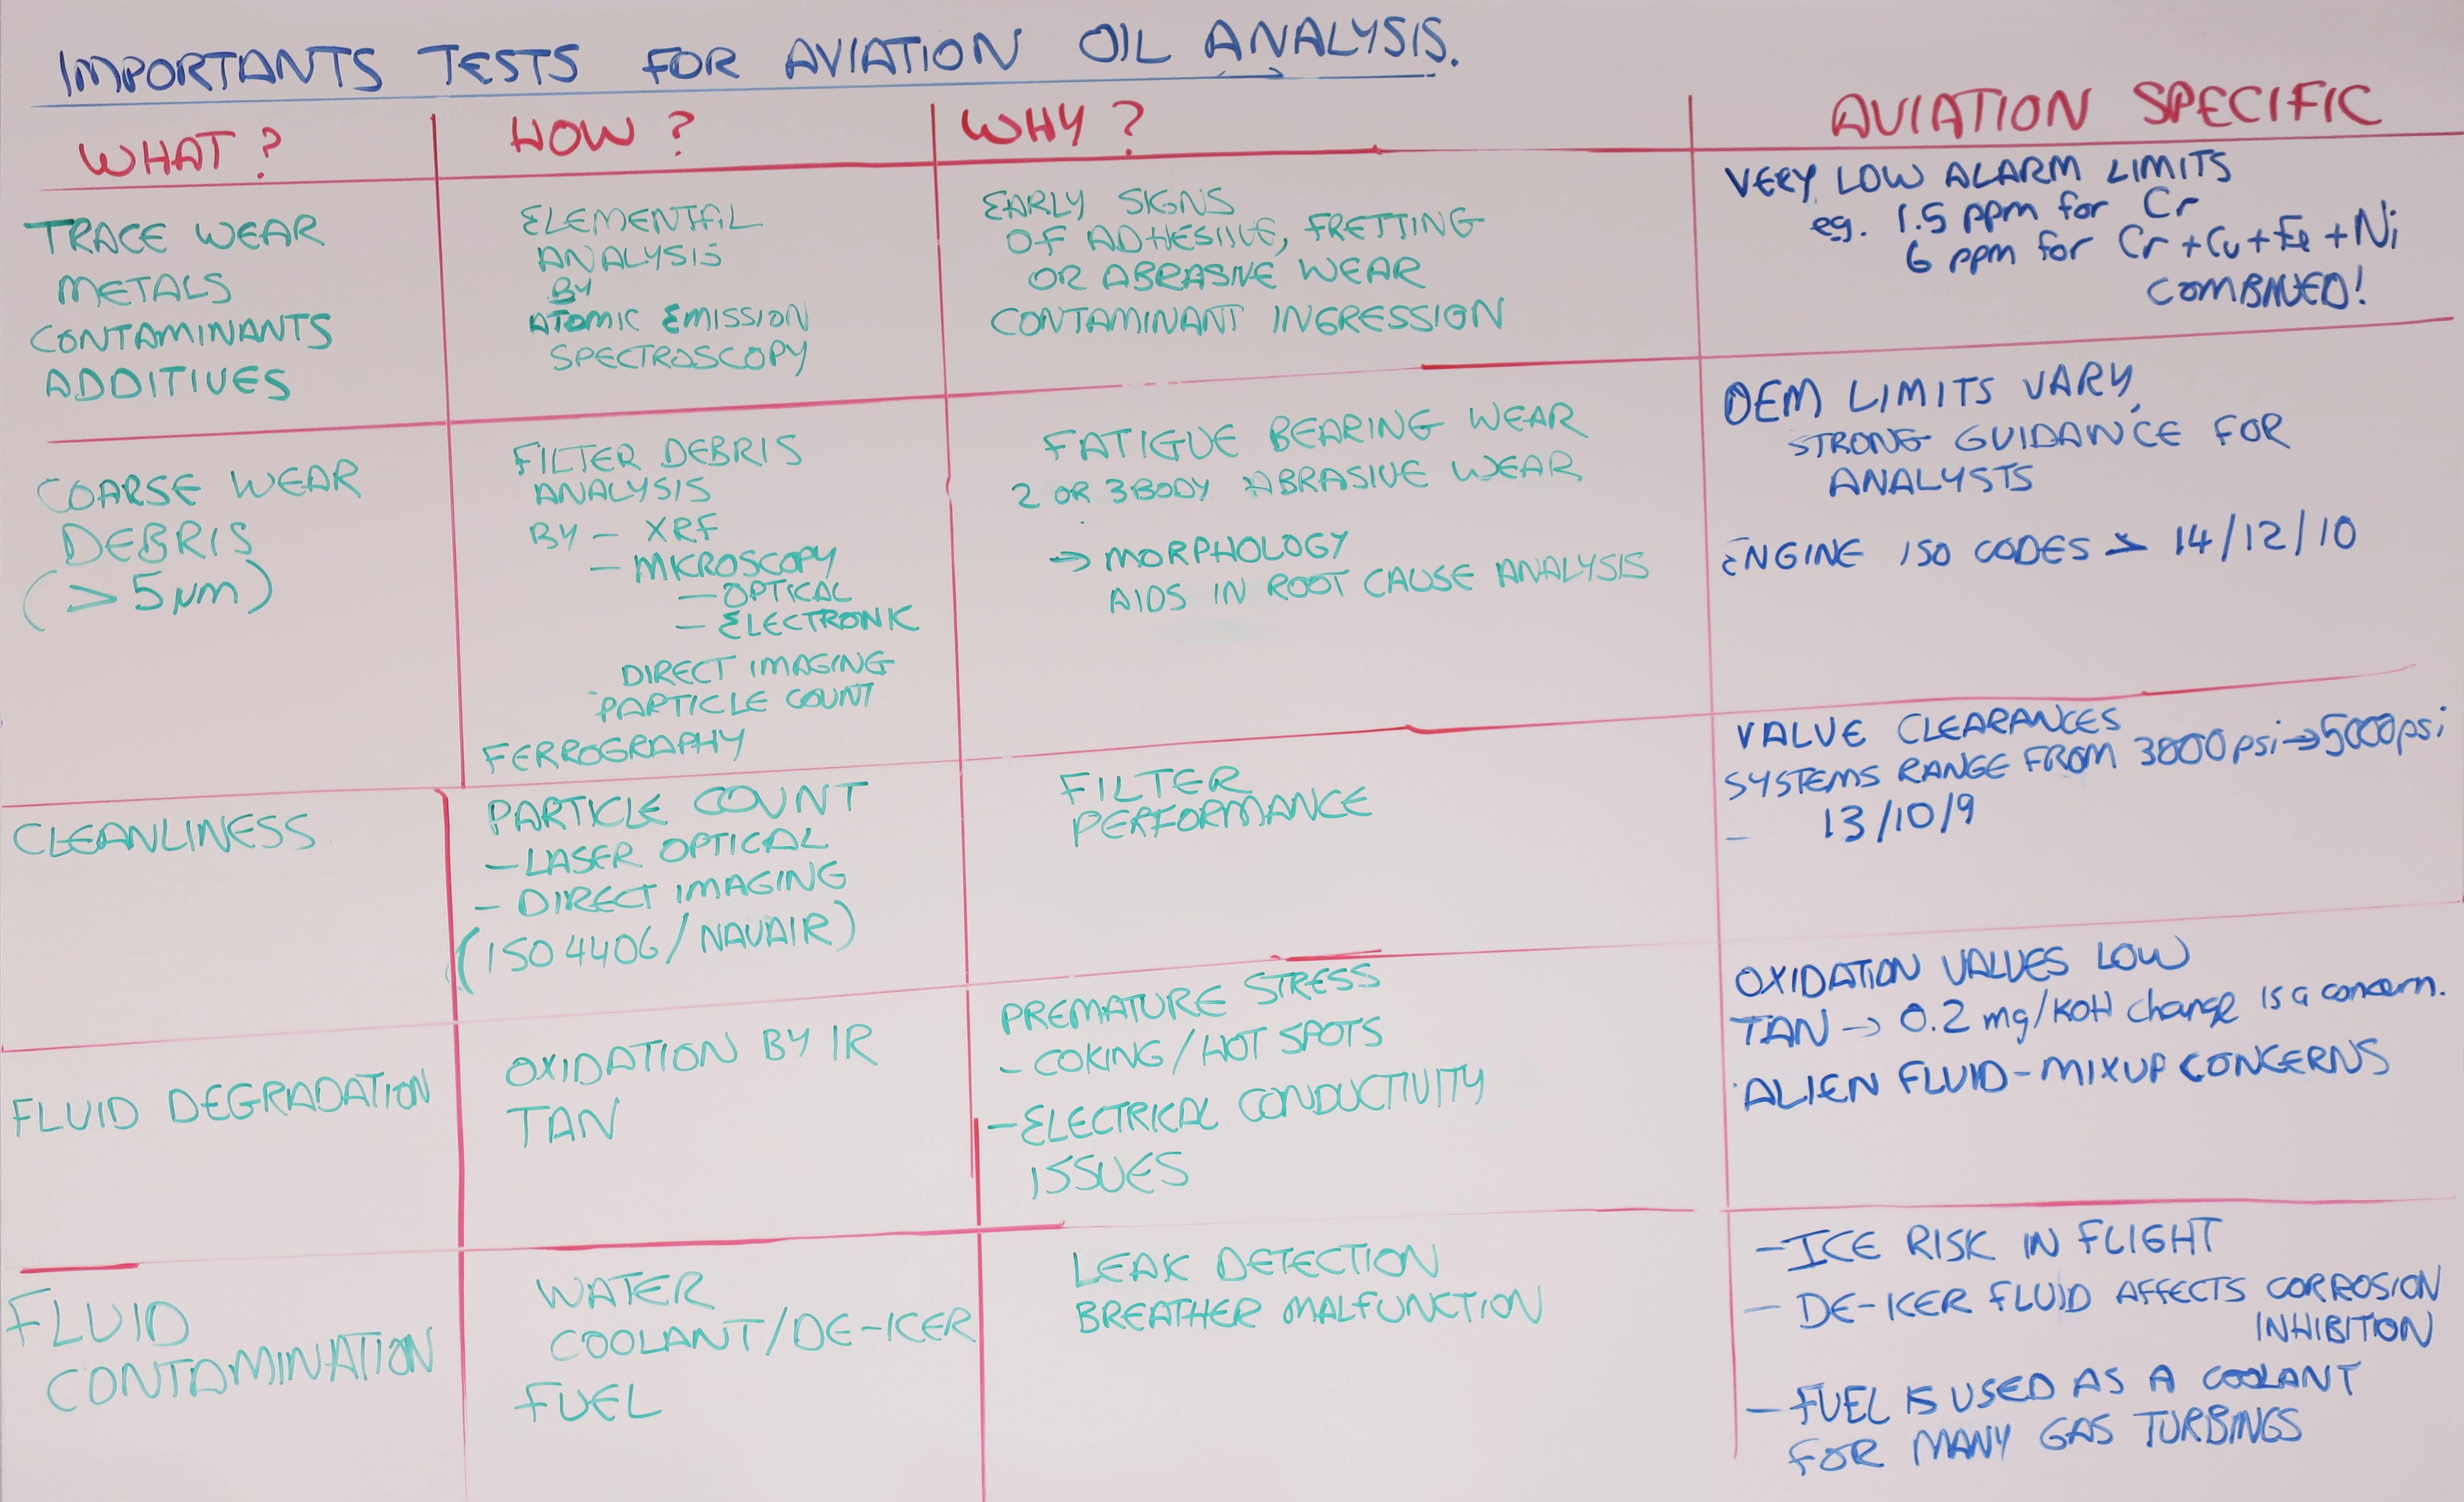 IMPORTANTS TESTS FOR AVIATION OIL ANALYSIS.
WHAT?
HOW?
WHY?
AVIATION SPECIFIC
TRACE WEAR
METALS
CONTAMINANTS
ADDITIVES
ELEMENTAL
ANALYSIS
BY
ATOMIC EMISSION
SPECTROSCOPY
EARLY SIGNS
OF ADHESIVE, FRETTING
OR ABRASIVE WEAR
CONTAMINANT INGRESSION
VERY LOW ALARM LIMITS
eg. 1.5 ppm for Cr
6 ppm for Cr+Cu+Fe+Ni
COMBINED!
COARSE WEAR
DEBRIS
(>5µm)
FILTER DEBRIS
ANALYSIS
BY – XRF
– MICROSCOPY
– OPTICAL
– ELECTRONIC
DIRECT IMAGING
PARTICLE COUNT
FERROGRAPHY
FATIGUE BEARING WEAR
2 OR 3 BODY ABRASIVE WEAR
→ MORPHOLOGY
AIDS IN ROOT CAUSE ANALYSIS
OEM LIMITS VARY,
STRONG GUIDANCE FOR
ANALYSTS
ENGINE ISO CODES > 14/12/10
CLEANLINESS
PARTICLE COUNT
– LASER OPTICAL
– DIRECT IMAGING
(ISO 4406/NAVAIR)
FILTER
PERFORMANCE
VALVE CLEARANCES
SYSTEMS RANGE FROM 3000psi→5000psi
– 13/10/9
FLUID DEGRADATION
OXIDATION BY IR
TAN
PREMATURE STRESS
– COKING/HOT SPOTS
– ELECTRICAL CONDUCTIVITY
ISSUES
OXIDATION VALUES LOW
TAN → 0.2 mg/KOH change is a concern.
ALIEN FLUID – MIXUP CONCERNS
FLUID
CONTAMINATION
WATER
COOLANT/DE-ICER
FUEL
LEAK DETECTION
BREATHER MALFUNCTION
– ICE RISK IN FLIGHT
– DE-ICER FLUID AFFECTS CORROSION
INHIBITION
– FUEL IS USED AS A COOLANT
FOR MANY GAS TURBINGS